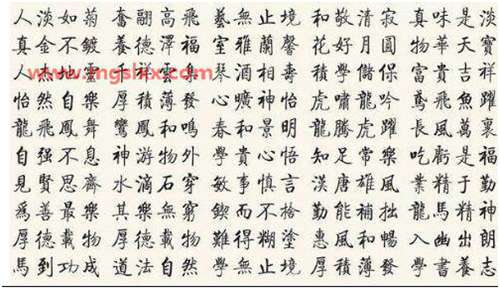 人淡如菊 奮翮高飛 藝無止境 和敬清寂 真味是淡
真金不鍍 養德澤福 室雅蘭馨 花好月圓 物華天寶
人杰地靈 千祥雲集 琴酒相壽 積學儲保 富貴吉祥
www.mgshxx.com
怡然自樂 厚積薄發 心曠神怡 虎嘯龍吟 鳶飛魚躍
龍飛鳳舞 鸞鳳和鳴 春和景明 龍騰虎躍 長風萬裏
自强不息 神游物外 學貴心悟 知足常樂 吃虧是福
見賢思齊 水滴石穿 敏事慎言 漢唐雄風 業精于勤
爲善最樂 其樂無窮 鍥而不捨 勤能補拙 龍馬精神
厚德載物 厚德載物 難得糊塗 惠風和暢 入幽出朗
馬到功成 道法自然 學無止境 厚積薄發 學書養志